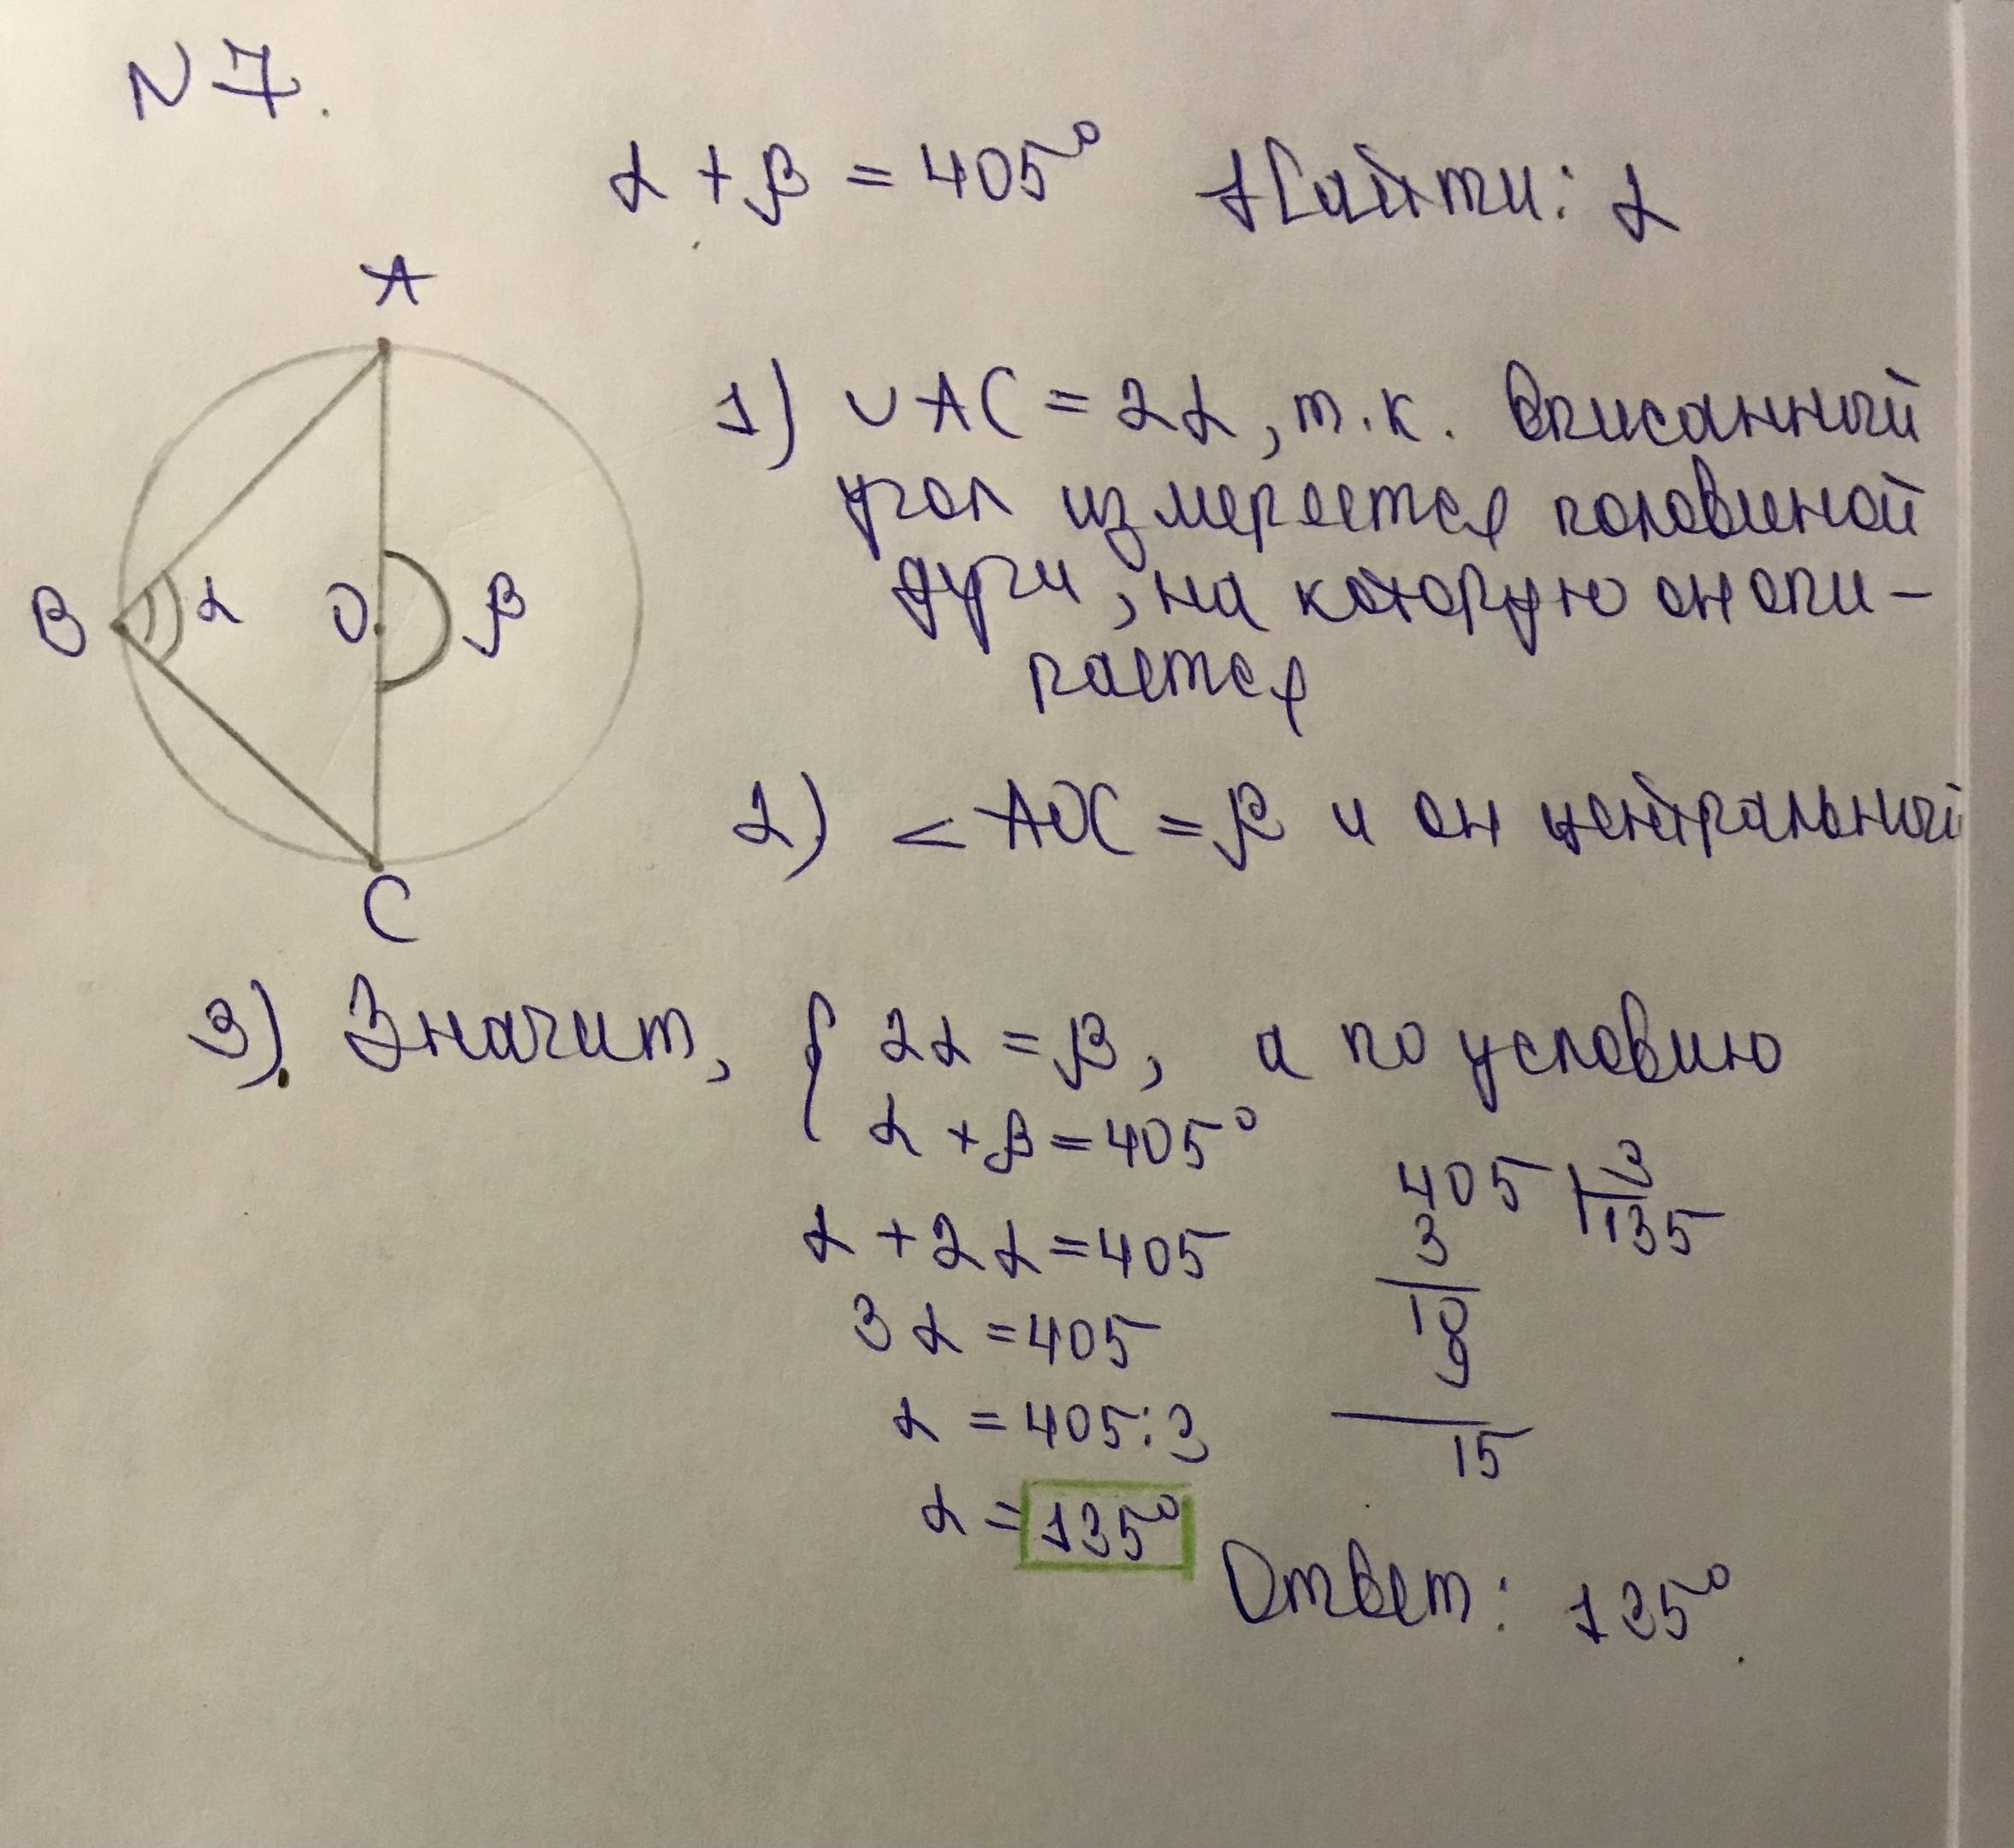 N 7.
α + β = 405° Найти: α
A
B α O β
C
1) ∪AC = 2α, т.к. вписанный
угол измеряется половиной
дуги, на которую он опи-
рается
2) ∠AOC = β и он центральный
3). Значит, { 2α = β, а по условию
α + β = 405°
α + 2α = 405
3α = 405
α = 405:3
α = 135°
405 | 3
3 135
10
9
15
Ответ: 135°.